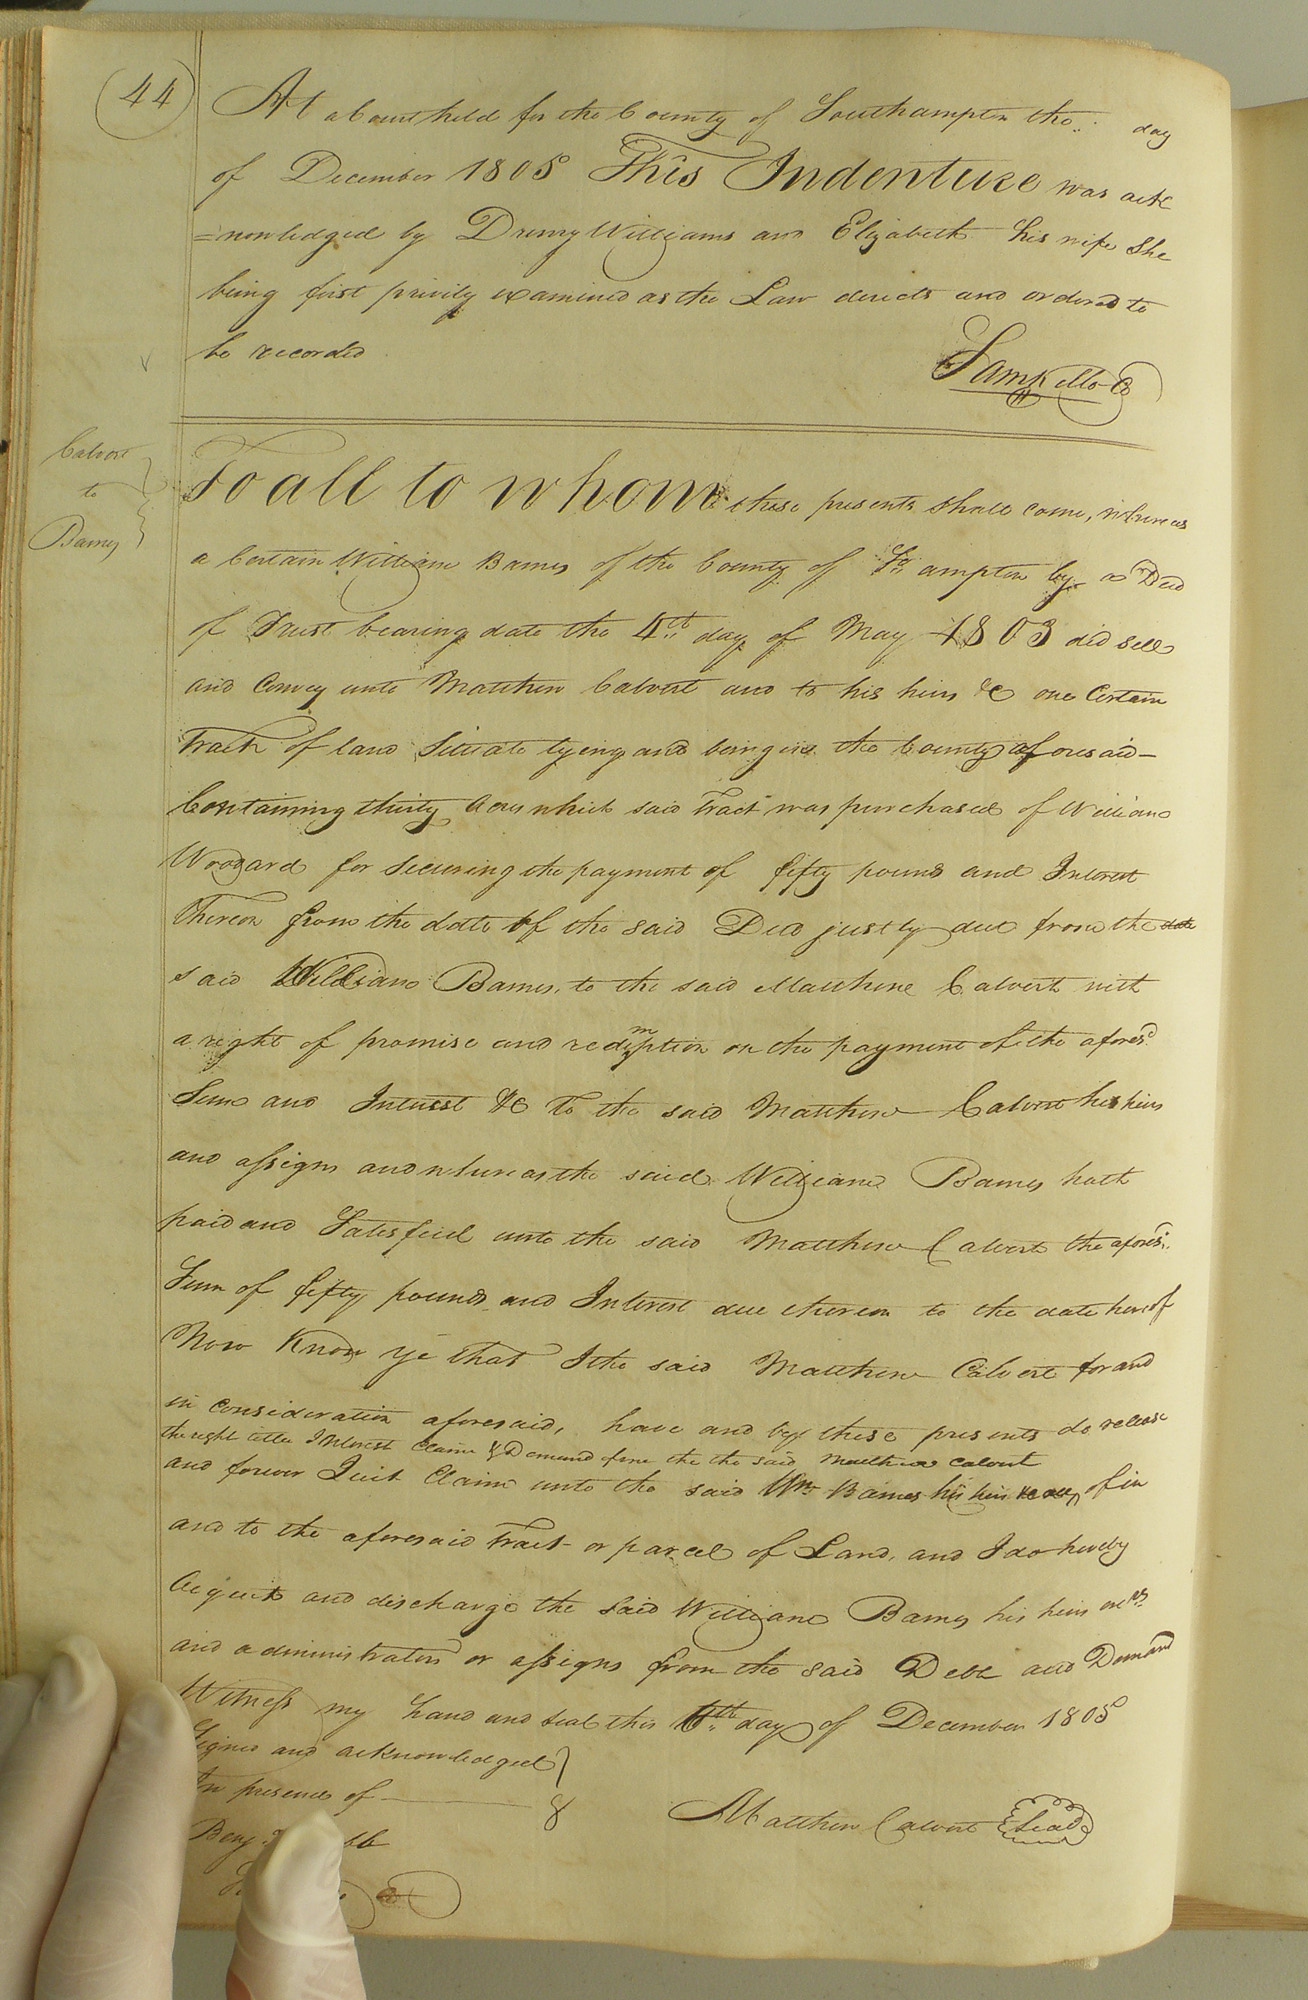 (44)
At a Court held for the County of Southampton the day
of December 1805 This Indenture was ack
=nowledged by Drewry Williams and Elizabeth his wife She
being first privily examined as the Law directs and ordered to
be recorded
Calvert
to
Barnes
To all to whom these presents shall come, whereas
a Certain William Barnes of the County of So.ampton by a Deed
of Trust bearing date the 4th day of May 1803 did sell
and Convey unto Matthew Calvert and to his heirs &c one Certain
Tract of land Situate lying and being in the County aforesaid —
Containing thirty Acres which said Tract was purchased of William
Woodard for securing the payment of fifty pound and Interest
Thereon from the date of the said Deed justly due from the date
said William Barnes, to the said Matthew Calvert with
a right of promise and redemption on the payment of the aforesd
Sum and Interest &c To the said Matthew Calvert his heirs
and assigns and whereas the said William Barnes hath
paid and Satisfied unto the said Matthew Calvert the aforesd
Sum of fifty pounds and Interest due thereon to the date hereof
Now Know ye that I the said Matthew Calvert for and
in consideration aforesaid, have and by these presents do release
the right title Interest Claim & Demand of me the the said Matthew Calvert
and forever Quit Claim unto the said Wm Barnes his heirs &c all of in
and to the aforesaid Tract or parcel of Land, and I do hereby
Acquit and discharge the Said William Barnes his heirs
and administrators or assigns from the said Debt and Demand
Witness my hand and seal this day of December 1805
Signed and acknowledged
In presence of
Matthew Calvert Seal
Benj